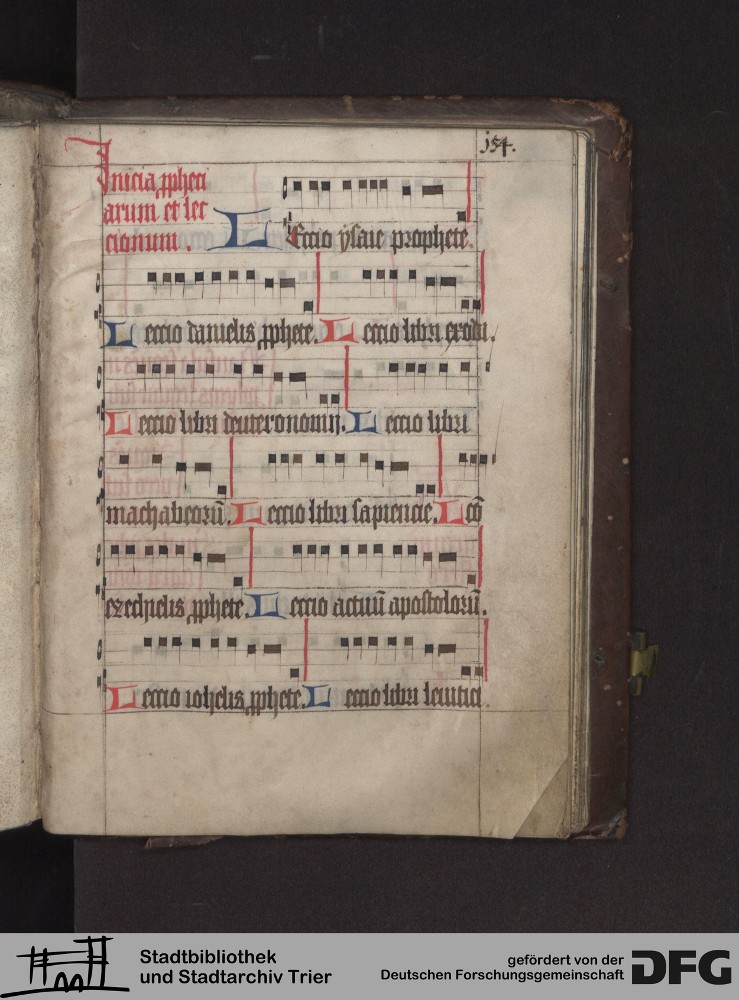 154.
Inicia ꝓpheci
arum et lec
cionum.
LEccio ysaie prophete.
Leccio danielis ꝓphete. Leccio libri exodi.
Leccio libri deuteronomij. Leccio libri
machabeorū. Leccio libri sapiencie. Lcō
ezechielis ꝓphete. Leccio actuū apostolorū.
Leccio iohelis ꝓphete. Leccio libri leuitici
Stadtbibliothek
und Stadtarchiv Trier
gefördert von der
Deutschen Forschungsgemeinschaft
DFG